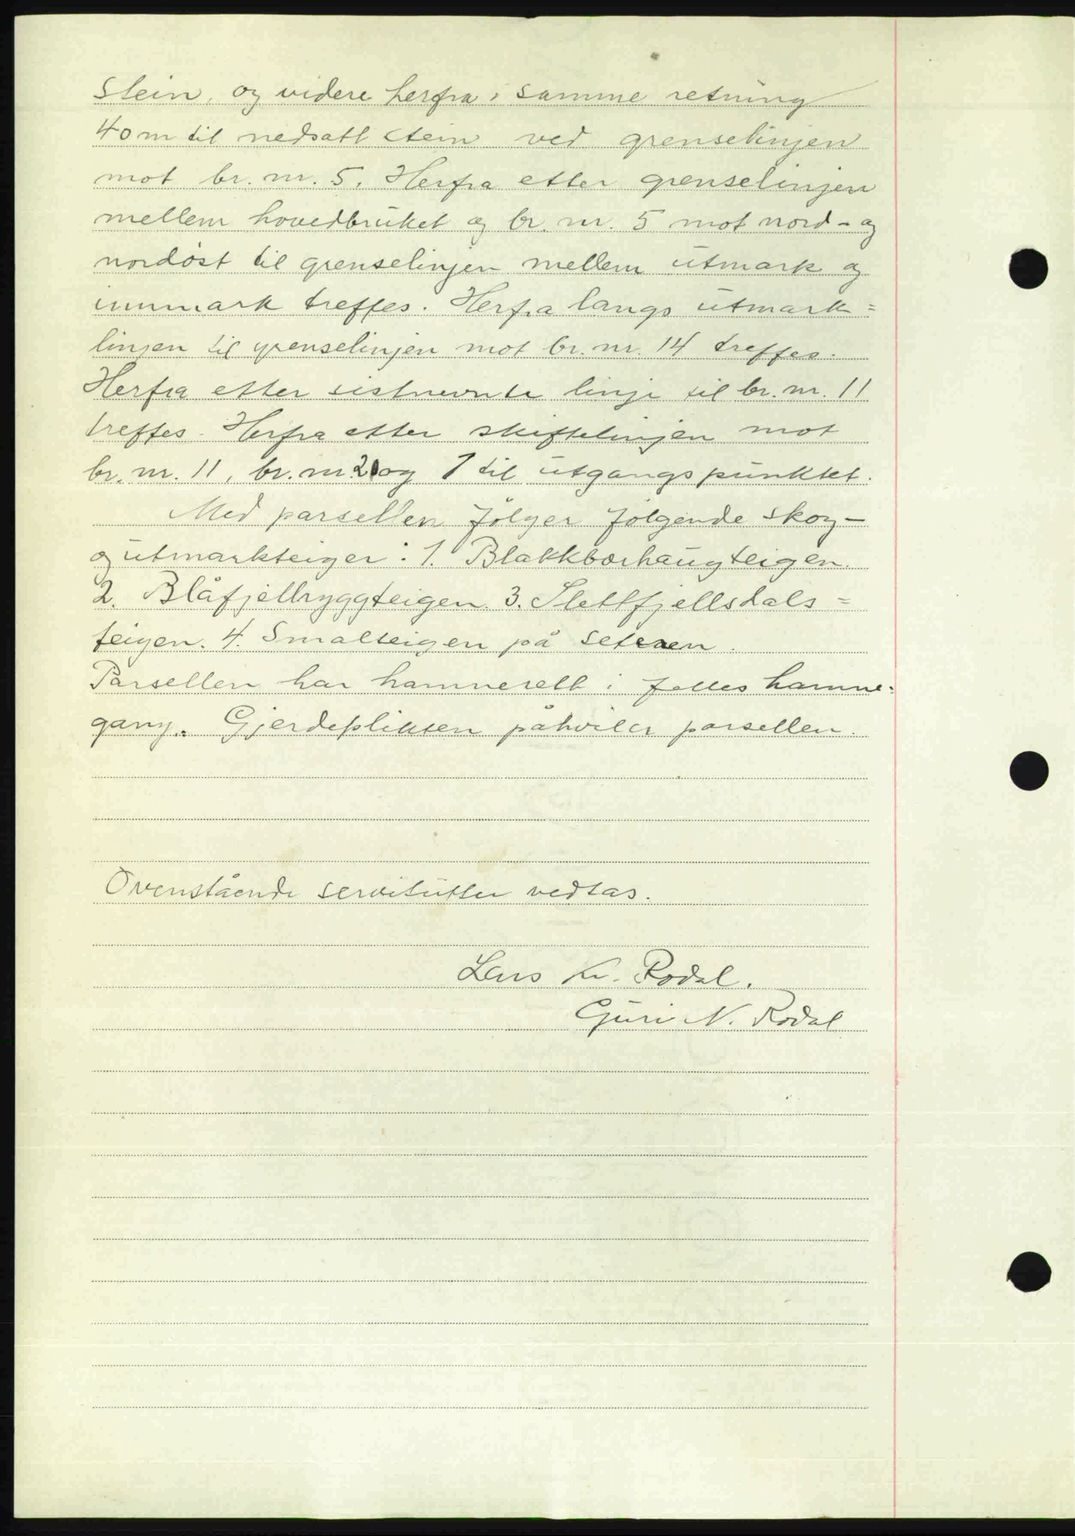 stein, og videre herfra i samme retning
40 m til nedsatt stein ved grenselinjen
mot br. nr. 5. Herfra etter grenselinjen
mellem hovedbruket og br. nr. 5 mot nord- og
nordøst til grenselinjen mellem utmark og
innmark treffes. Herfra langs utmark=
linjen til grenselinjen mot br. nr. 14 treffes.
Herfra etter sistnevnte linje til br. nr. 11
treffes. Herfra etter skiftelinjen mot
br. nr. 11, br. nr. 2 og 1 til utgangspunktet.
Med parsellen følger følgende skog-
og utmarkteiger: 1. Blakkbørhaugteigen.
2. Blåfjellryggteigen. 3. Slettfjellsdals=
teigen. 4. Smalteigen på seteren.
Parsellen har hamnerett i felles hamne=
gang. Gjerdeplikten påhviler parsellen.
Ovenstående servitutter vedtas.
Lars Kr. Rodal.
Guri N. Rodal